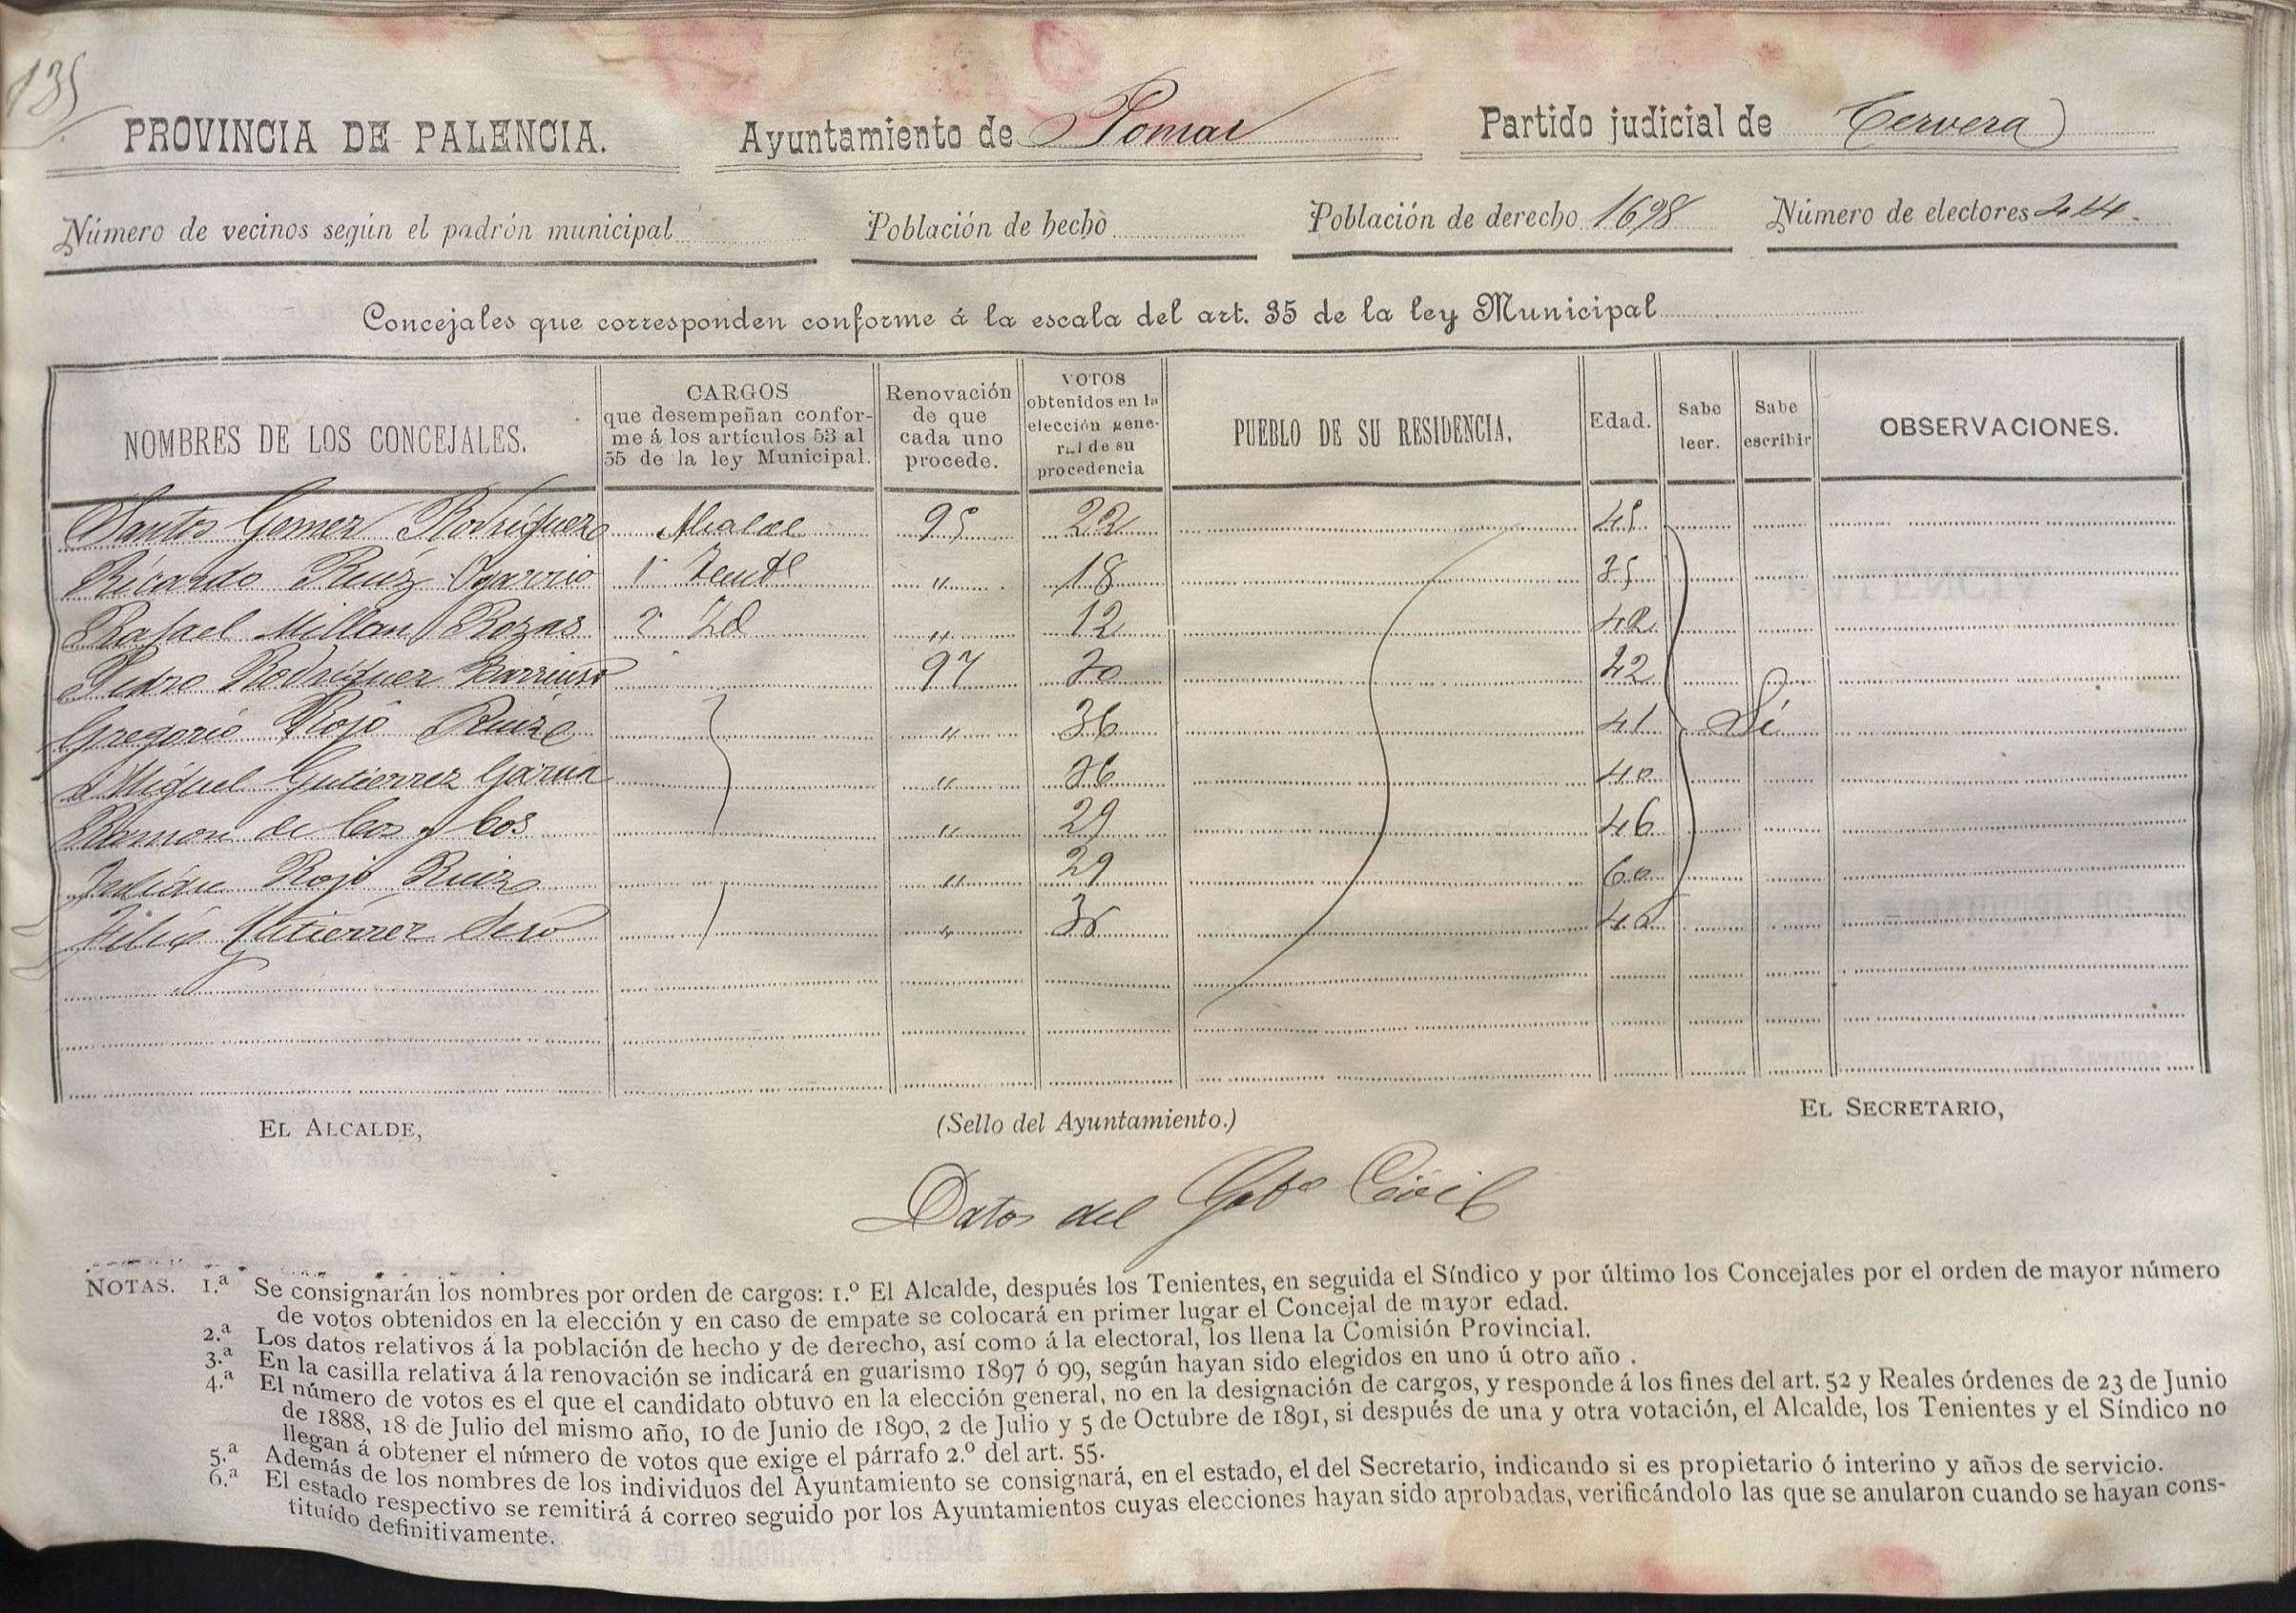 135
PROVINCIA DE PALENCIA. Ayuntamiento de Pomar Partido judicial de Cervera
Número de vecinos según el padrón municipal Población de hecho Población de derecho 1698 Número de electores 244.
Concejales que corresponden conforme á la escala del art. 35 de la ley Municipal
NOMBRES DE LOS CONCEJALES. CARGOS que desempeñan conforme á los artículos 53 al 55 de la ley Municipal. Renovación de que cada uno procede. VOTOS obtenidos en la elección general de su procedencia PUEBLO DE SU RESIDENCIA. Edad. Sabe leer. Sabe escribir OBSERVACIONES.
Santos Gomez Rodriguez Alcalde 95 22 45
Ricardo Ruiz 1º Tente " 18 35
Rafael Millan Rozas 2º Id " 12 42
Pedro Rodriguez Barriuso 97 42
Gregorio Rojo Ruiz " 36 41 Si
Miguel Gutierrez Garcia " 40
Ramon de Cos y Cos " 29 46
Julián Rojo Ruiz " 29 60
Gutierrez " 40
EL ALCALDE, (Sello del Ayuntamiento.) EL SECRETARIO,
Datos del Gobº Civil
NOTAS. 1.ª Se consignarán los nombres por orden de cargos: 1.º El Alcalde, después los Tenientes, en seguida el Síndico y por último los Concejales por el orden de mayor número
de votos obtenidos en la elección y en caso de empate se colocará en primer lugar el Concejal de mayor edad.
2.ª Los datos relativos á la población de hecho y de derecho, así como á la electoral, los llena la Comisión Provincial.
3.ª En la casilla relativa á la renovación se indicará en guarismo 1897 ó 99, según hayan sido elegidos en uno ú otro año .
4.ª El número de votos es el que el candidato obtuvo en la elección general, no en la designación de cargos, y responde á los fines del art. 52 y Reales órdenes de 23 de Junio
de 1888, 18 de Julio del mismo año, 10 de Junio de 1890, 2 de Julio y 5 de Octubre de 1891, si después de una y otra votación, el Alcalde, los Tenientes y el Síndico no
llegan á obtener el número de votos que exige el párrafo 2.º del art. 55.
5.ª Además de los nombres de los individuos del Ayuntamiento se consignará, en el estado, el del Secretario, indicando si es propietario ó interino y años de servicio.
6.ª El estado respectivo se remitirá á correo seguido por los Ayuntamientos cuyas elecciones hayan sido aprobadas, verificándolo las que se anularon cuando se hayan cons-
tituído definitivamente.